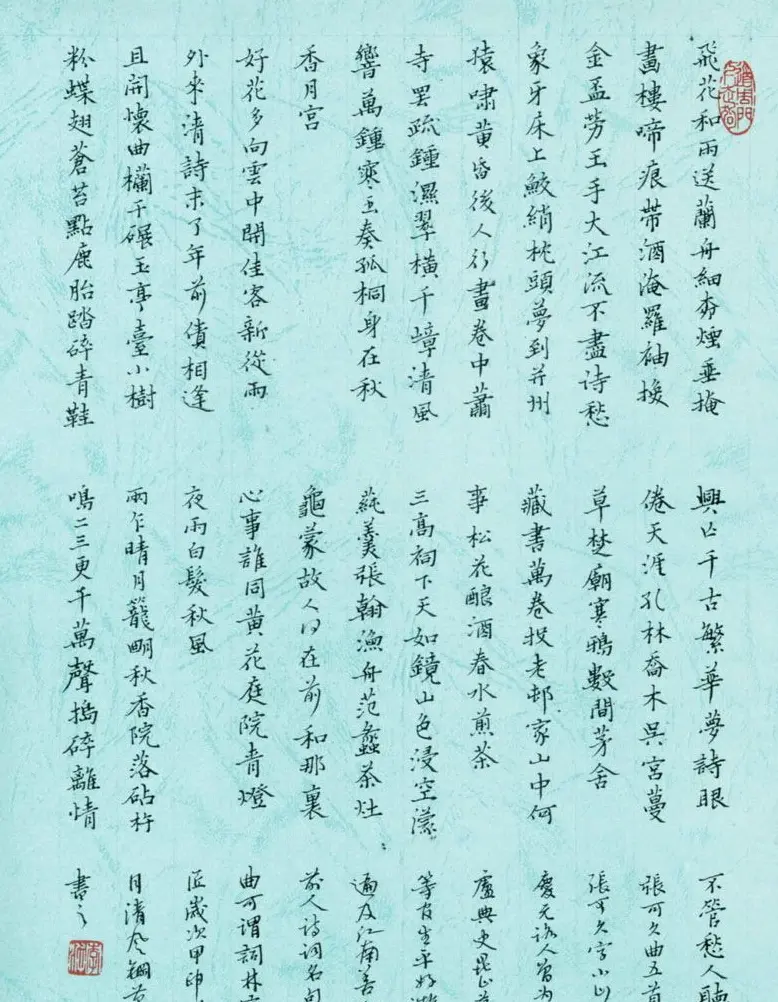 飛花和雨送蘭舟細柳煙垂掩
畫樓啼痕帶酒淹羅袖換
金盃勞玉手大江流不盡诗愁
象牙床上鮫綃枕頭夢到并州
猿嘯黃昏後人行畫卷中蕭
寺罢疏鍾濕翠橫千嶂清風
響萬鍾寒玉奏孤桐身在秋
香月宮
好花多向雲中開佳客新從雨
外來清詩未了年前債相逢
且開懷曲欄干碾玉亭臺小樹
粉蝶翅蒼苔點鹿胎踏碎青鞋
興亡千古繁華夢詩眼
倦天涯孔林喬木吳宮蔓
草楚廟寒鴉數間茅舍
藏書萬卷投老邨家山中何
事松花酿酒春水煎茶
三高祠下天如鏡山色浸空濛
蓴羹張翰漁舟范蠡茶灶
龜蒙故人何在前和那裏
心事誰同黃花庭院青燈
夜雨白髮秋風
雨乍晴月籠明秋香院落砧杵
鳴二三更千萬聲搗碎離情
不管愁人聽
張可久曲五首
張可久字小山
慶元路人曾为
盧典史崑山
等官生平好游
遍及江南善
前人詩詞名句
曲可謂詞林
匠歲次甲申
月清風
書之